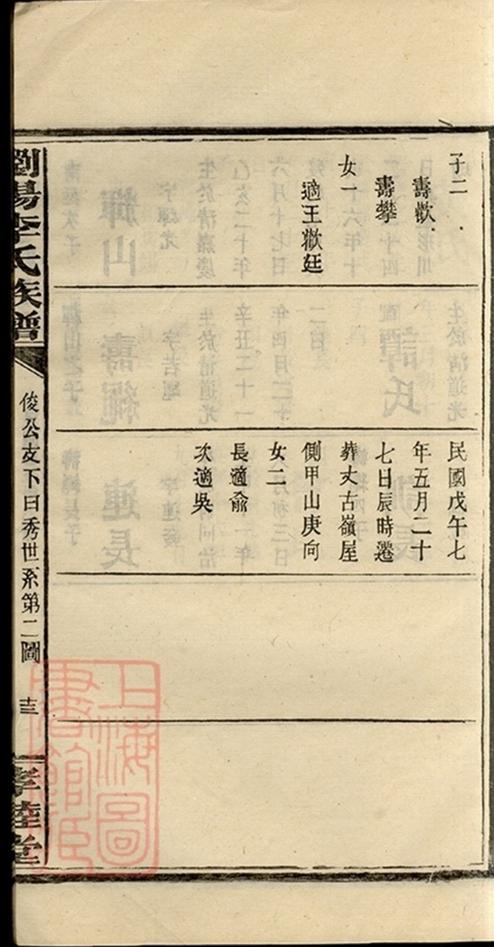 子二
壽歡
壽攀
女一
適王歡廷
民國戊午七
年五月二十
七日辰時遷
葬丈古嶺屋
側甲山庚向
女二
長適俞
次適吳
瀏陽李氏族譜
俊公支下曰秀世系第二圖
十三
孝睦堂
上海圖
書館藏